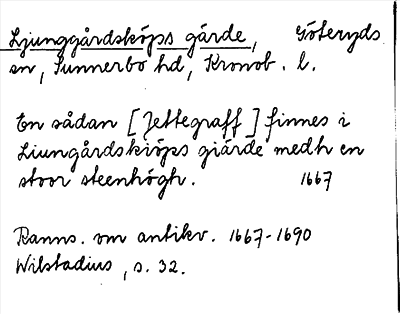 Ljunggårdsköps gärde, Göteryds
sn, Sunnerbo hd, Kronob. l.
En sådan [Jettegraff] finnes i
Liungårdskiöps giärde medh en
stoor steenhögh. 1667
Ranns. om antikv. 1667-1690
Wilstadius, s. 32.